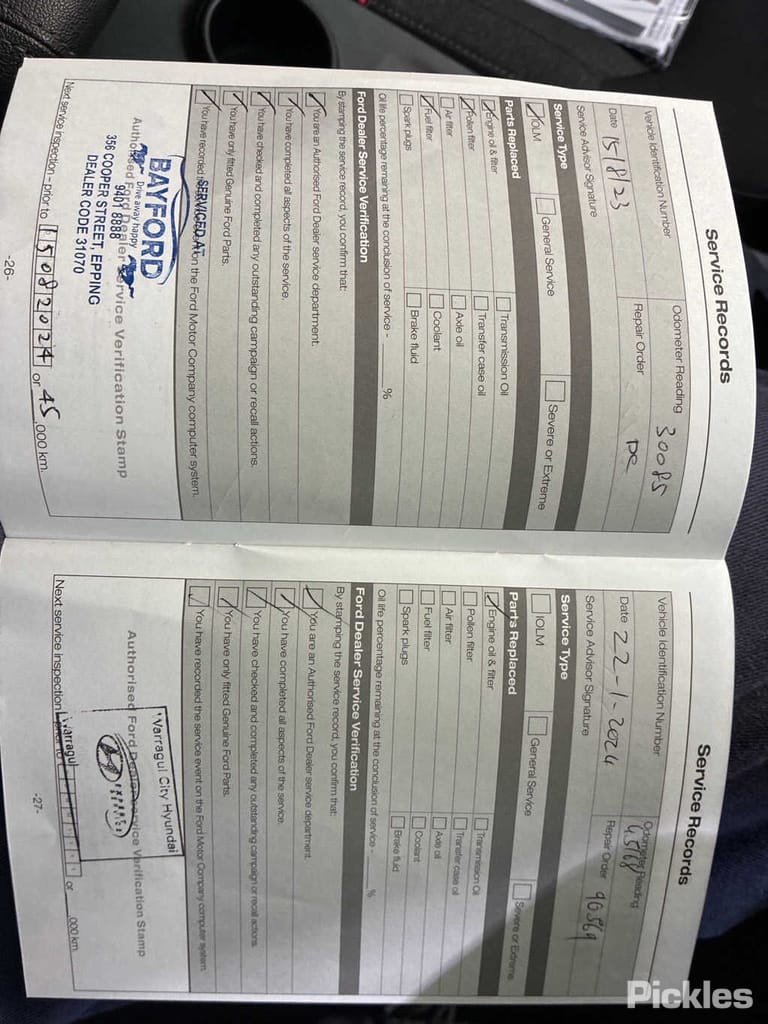 Service Records
Vehicle Identification Number
Odometer Reading 30085
Date 15/8/23
Repair Order DR
Service Advisor Signature
Service Type
IOLM
General Service
Severe or Extreme
Parts Replaced
Engine oil & filter
Transmission Oil
Pollen filter
Transfer case oil
Air filter
Axle oil
Fuel filter
Coolant
Spark plugs
Brake fluid
Oil life percentage remaining at the conclusion of service - %
Ford Dealer Service Verification
By stamping the service record, you confirm that:
You are an Authorised Ford Dealer service department.
You have completed all aspects of the service.
You have checked and completed any outstanding campaign or recall actions.
You have only fitted Genuine Ford Parts.
You have recorded the service event on the Ford Motor Company computer system.
SERVICED AT
BAYFORD
Drive away happy
9401 8888
356 COOPER STREET, EPPING
DEALER CODE 31070
Authorised Ford Dealer Service Verification Stamp
Next service inspection - prior to 15082024 or 45,000 km.
-26-
Service Records
Vehicle Identification Number
Odometer Reading 45768
Date 22-1-2024
Repair Order 90569
Service Advisor Signature
Service Type
IOLM
General Service
Severe or Extreme
Parts Replaced
Engine oil & filter
Transmission Oil
Pollen filter
Transfer case oil
Air filter
Axle oil
Fuel filter
Coolant
Spark plugs
Brake fluid
Oil life percentage remaining at the conclusion of service - %
Ford Dealer Service Verification
By stamping the service record, you confirm that:
You are an Authorised Ford Dealer service department.
You have completed all aspects of the service.
You have checked and completed any outstanding campaign or recall actions.
You have only fitted Genuine Ford Parts.
You have recorded the service event on the Ford Motor Company computer system.
Warragul City Hyundai
Warragul
Authorised Ford Dealer Service Verification Stamp
Next service inspection - prior to or ,000 km.
-27-
Pickles